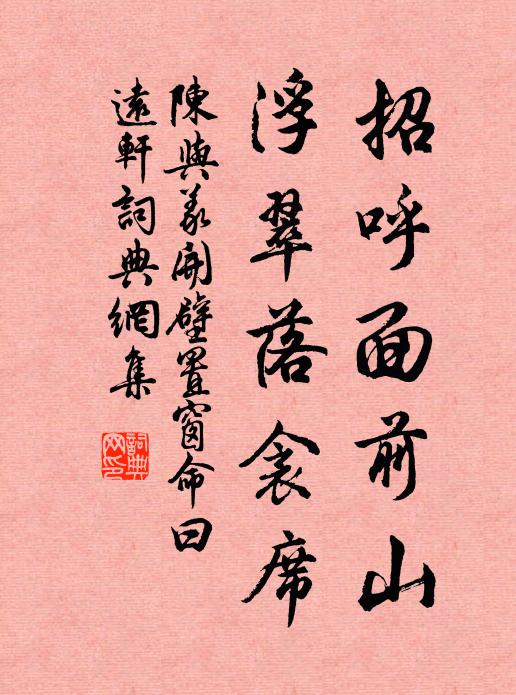 招呼面前山
浮翠落衾席
陳與義開壁置窗命曰
遠軒詞典網集
詞典網印